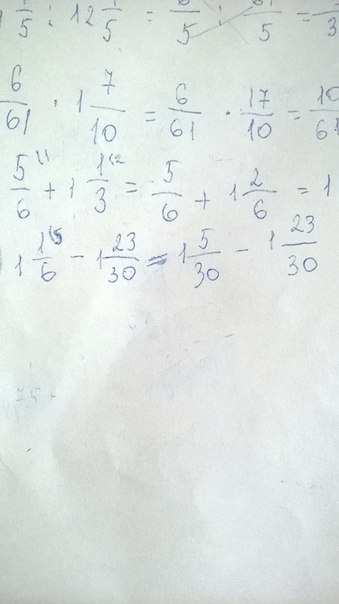 1/5 : 12 1/5 = 6/5 : 61/5 =
6/61 · 1 7/10 = 6/61 · 17/10 = 10/61
5/6 + 1 1/3 = 5/6 + 1 2/6 = 1
1 1/6 - 1 23/30 = 1 5/30 - 1 23/30